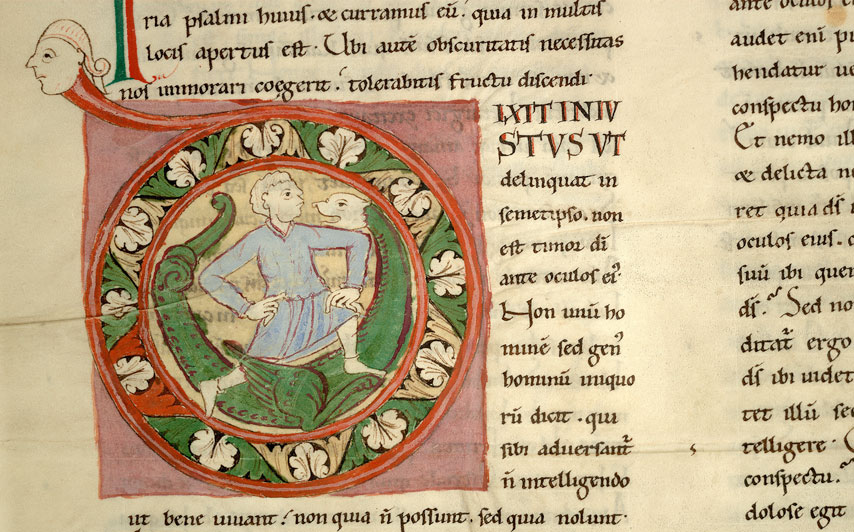 ria psalmi huius. & curramus eū. quia in multis
locis apertus est. Ubi autē obscuritatis necessitas
nos inmorari coegerit. tolerabitis fructu discendi
IXIT INIU
STUS UT
delinquat in
semetipso. non
est timor dī
ante oculos ei᾽.
Non unū ho
minē sed gen᾽
hominū iniquo
rū dicit. qui
sibi adversant᷑
n̄ intelligendo
ut bene uiuant. non quia n̄ possunt. sed quia nolunt.
ante oculos e
audet enī p
hendatur ue
conspectu ho
Et nemo ill
& delicta n
ret quia ds̄
oculos eius.
suū ibi que
ds̄. Sed no
ditat᷑ ergo
ds̄ ibi uidet
tet illū se
telligere.
conspectu.
dolose egit